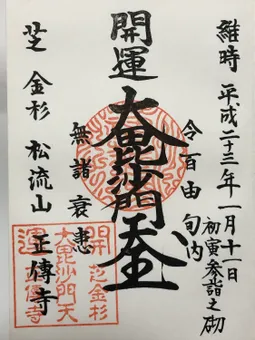 維時 平成二十三年一月十一日
初寅参詣之砌
令百由旬内
開運
大毘沙門天王
無諸衰患
芝 金杉 松流山
正傳寺
開運
大毘沙門天
芝金杉
正傳寺